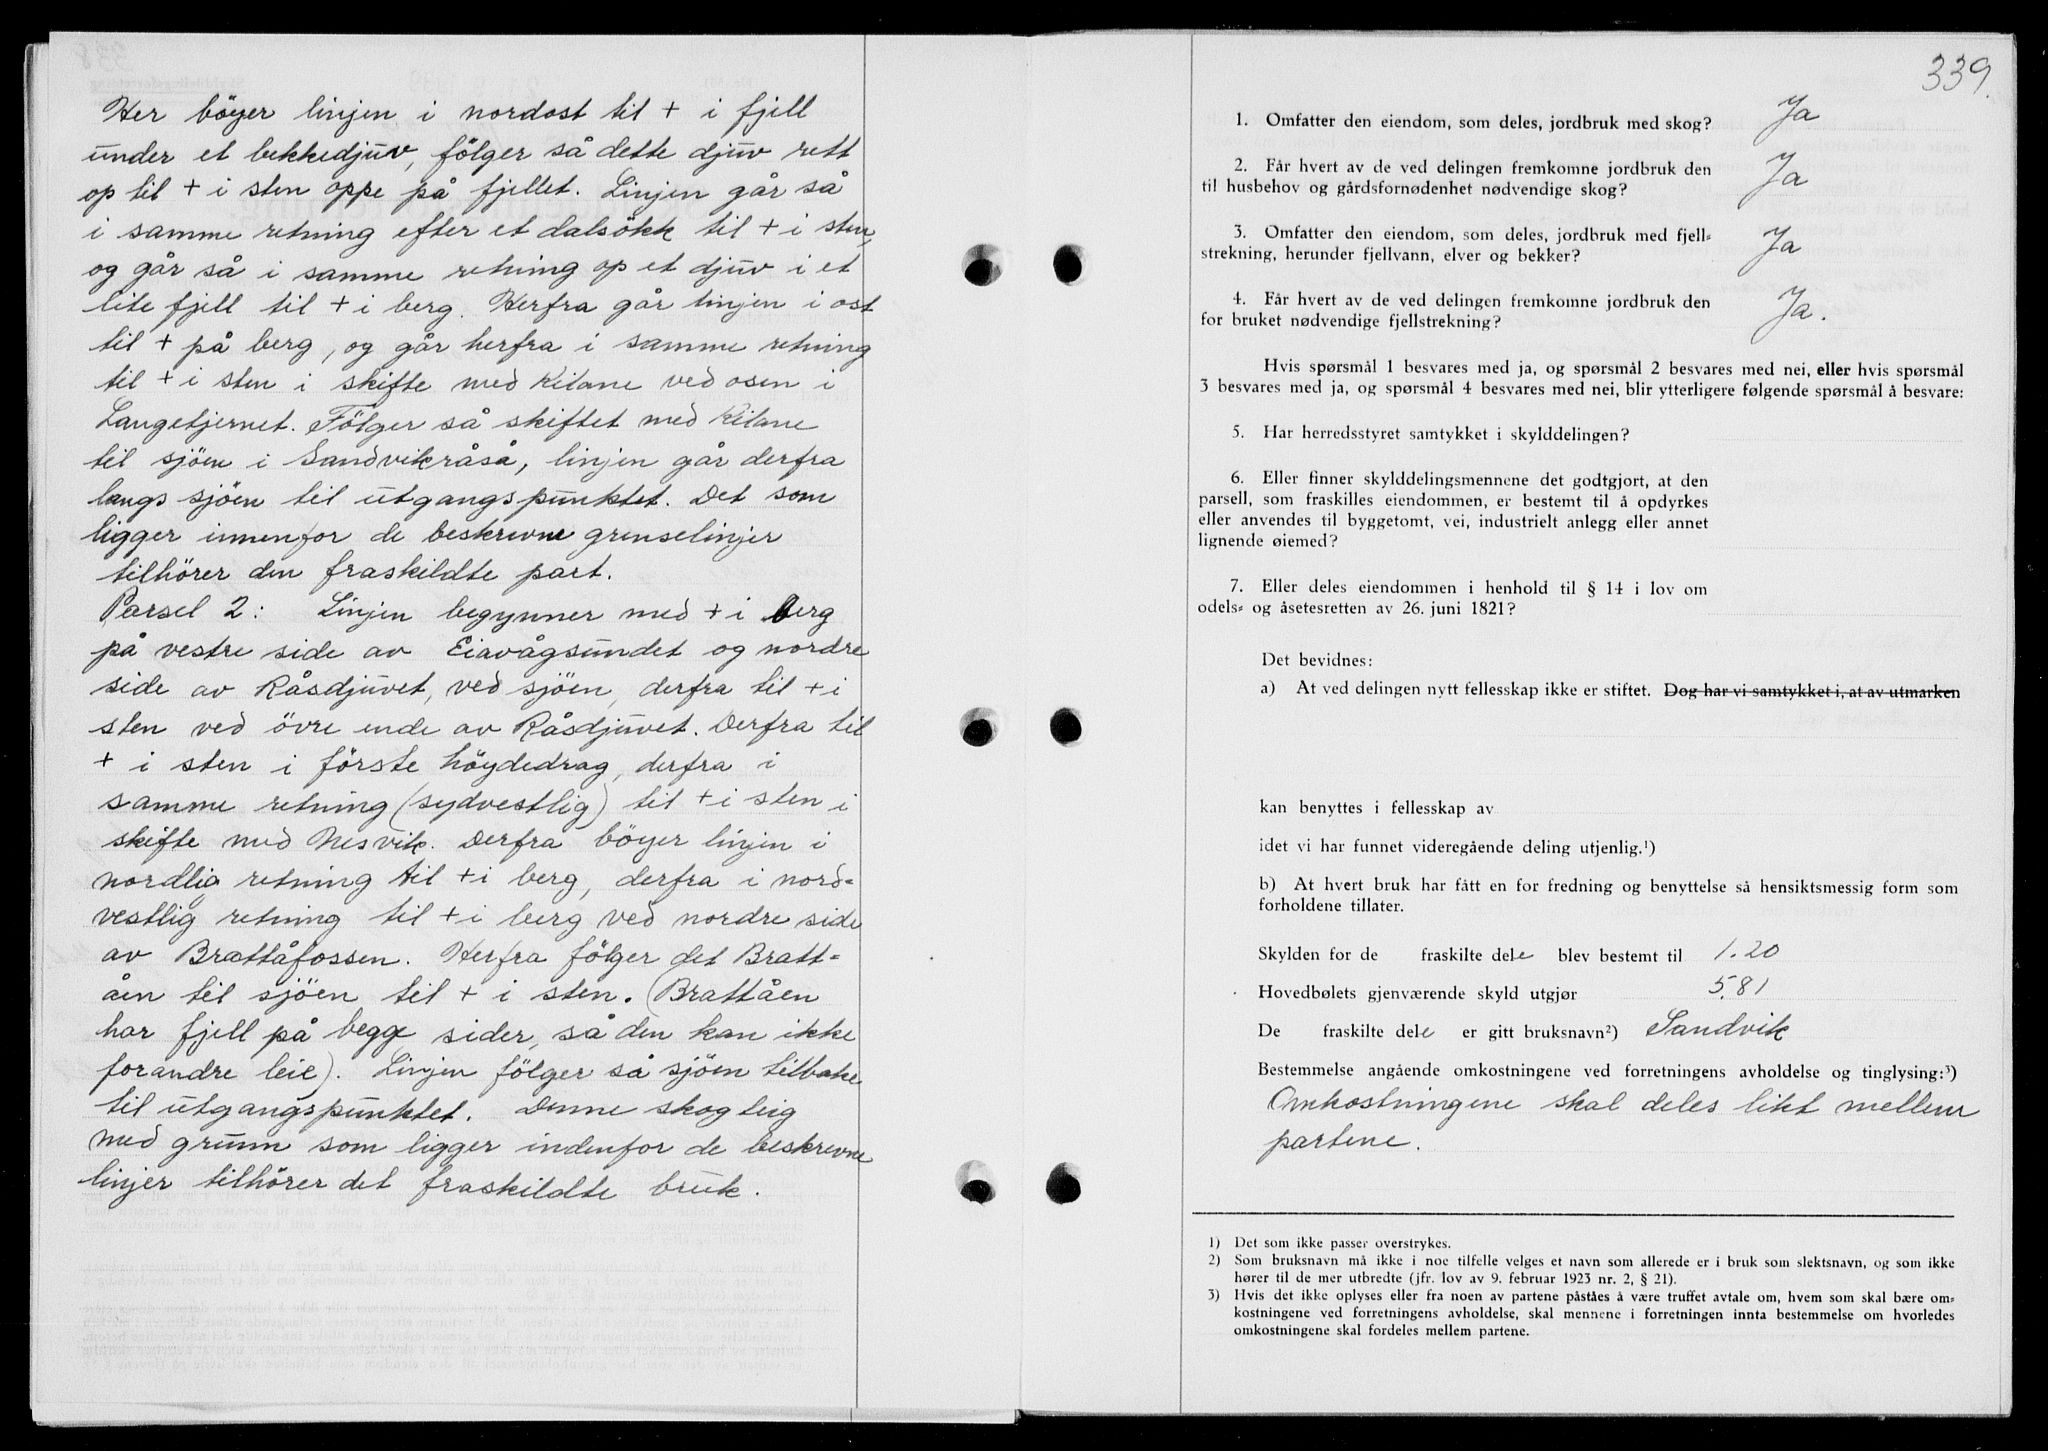 Her böyer linjen i nordost til + i fjell
under et bekkedjuv, fölger så dette djuv rett
op til + i sten oppe på fjellet. Linjen går så
i samme retning efter et dalsökk til + i sten,
og går så i samme retning op et djuv i et
lite fjell til + i berg. Herfra går linjen i ost
til + på berg, og går herfra i samme retning
til + i sten i skifte med Kilane ved osen i
Langetjernet. Fölger så skiftet med Kilane
til sjöen i Sandvikråså, linjen går derfra
langs sjöen til utgangspunktet. Det som
ligger innenfor de beskrevne grenselinjer
tilhörer den fraskildte part.
Parsel 2: Linjen begynner med + i berg
på vestre side av Eiavågsundet og nordre
side av Råsdjuvet, ved sjöen, derfra til + i
sten ved övre ende av Råsdjuvet. Derfra til
+ i sten i förste höydedrag, derfra i
samme retning (sydvestlig) til + i sten i
skifte med Nesvik. Derfra böyer linjen i
nordlig retning til + i berg, derfra i nord-
vestlig retning til + i berg ved nordre side
av Brattåfossen. Herfra fölger det Bratt-
åen til sjöen til + i sten. (Brattåen
har fjell på begge sider, så den kan ikke
forandre leie). Linjen fölger så sjöen tilbake
til utgangspunktet. Denne skogteig
med grunn som ligger indenfor de beskrevne
linjer tilhörer det fraskildte bruk.
339.
1. Omfatter den eiendom, som deles, jordbruk med skog? Ja
2. Får hvert av de ved delingen fremkomne jordbruk den
til husbehov og gårdsfornødenhet nødvendige skog? Ja
3. Omfatter den eiendom, som deles, jordbruk med fjell-
strekning, herunder fjellvann, elver og bekker? Ja
4. Får hvert av de ved delingen fremkomne jordbruk den
for bruket nødvendige fjellstrekning? Ja.
Hvis spørsmål 1 besvares med ja, og spørsmål 2 besvares med nei, eller hvis spørsmål
3 besvares med ja, og spørsmål 4 besvares med nei, blir ytterligere følgende spørsmål å besvare:
5. Har herredsstyret samtykket i skylddelingen?
6. Eller finner skylddelingsmennene det godtgjort, at den
parsell, som fraskilles eiendommen, er bestemt til å opdyrkes
eller anvendes til byggetomt, vei, industrielt anlegg eller annet
lignende øiemed?
7. Eller deles eiendommen i henhold til § 14 i lov om
odels- og åsetesretten av 26. juni 1821?
Det bevidnes:
a) At ved delingen nytt fellesskap ikke er stiftet. Dog har vi samtykket i, at av utmarken
kan benyttes i fellesskap av
idet vi har funnet videregående deling utjenlig.¹)
b) At hvert bruk har fått en for fredning og benyttelse så hensiktsmessig form som
forholdene tillater.
Skylden for de fraskilte dele blev bestemt til 1.20
Hovedbølets gjenværende skyld utgjør 5.81
De fraskilte dele er gitt bruksnavn²) Sandvik
Bestemmelse angående omkostningene ved forretningens avholdelse og tinglysing:³)
Omkostningene skal deles likt mellem
partene.
1) Det som ikke passer overstrykes.
2) Som bruksnavn må ikke i noe tilfelle velges et navn som allerede er i bruk som slektsnavn, og som ikke
hører til de mer utbredte (jfr. lov av 9. februar 1923 nr. 2, § 21).
3) Hvis det ikke oplyses eller fra noen av partene påståes å være truffet avtale om, hvem som skal bære om-
kostningene ved forretningens avholdelse, skal mennene i forretningen innta bestemmelse om hvorledes
omkostningene skal fordeles mellem partene.